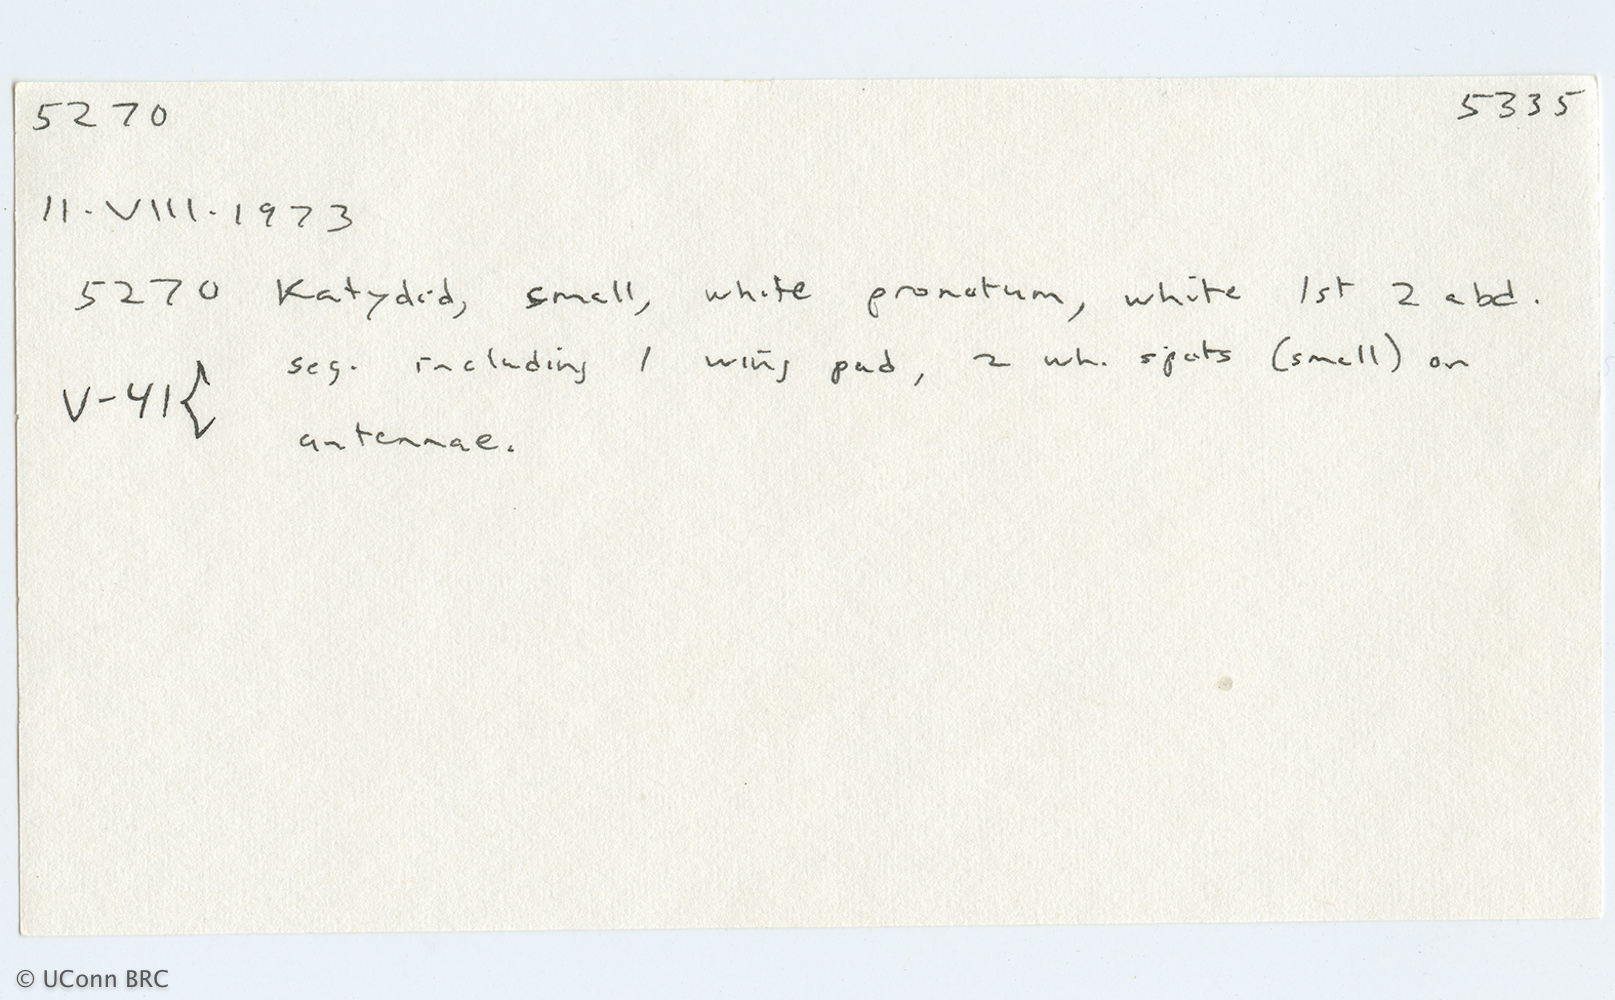 5270 5335
11·VIII·1973
5270 Katydid, small, white pronotum, white 1st 2 abd.
seg. including 1 wing pad, 2 wh. spots (small) on
V-41{
antennae.
© UConn BRC